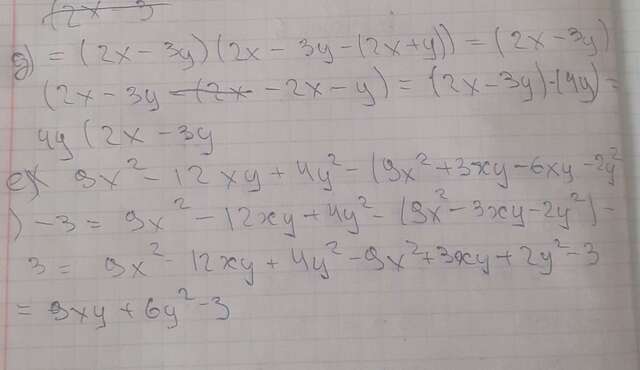 (2x - 3
д) = (2x - 3y)(2x - 3y - (2x + y)) = (2x - 3y)
(2x - 3y - (2x - 2x - y) = (2x - 3y) · (4y) =
4y (2x - 3y
е) 9x² - 12xy + 4y² - (9x² + 3xy - 6xy - 2y²
) - 3 = 9x² - 12xy + 4y² - (9x² - 3xy - 2y²) -
3 = 9x² - 12xy + 4y² - 9x² + 3xy + 2y² - 3
= 9xy + 6y² - 3